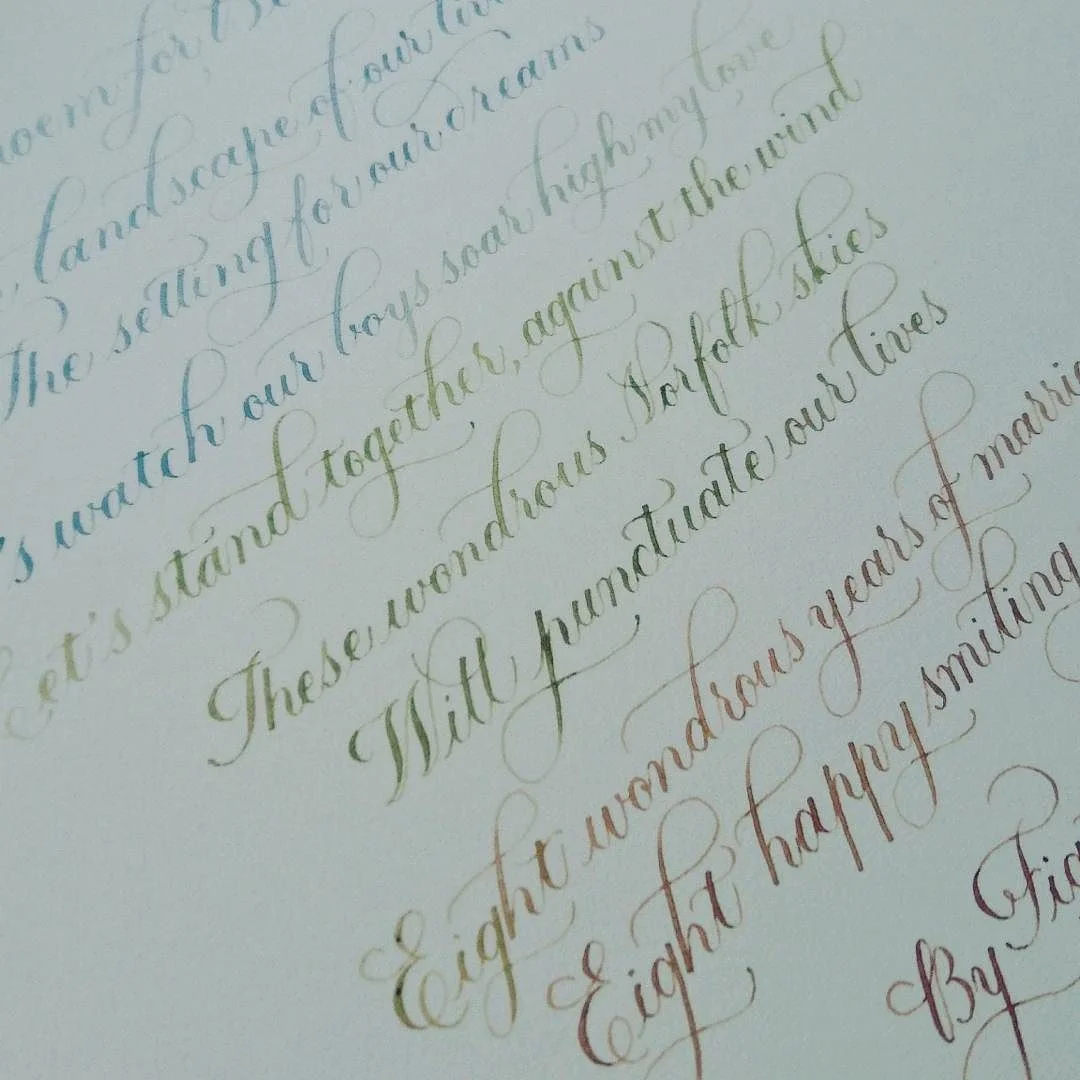 poem for
landscape of our
The setting for our dreams
's watch our boys soar high my love
Let's stand together, against the wind
These wondrous Norfolk skies
Will punctuate our lives
Eight wondrous years of
Eight happy smiling
By